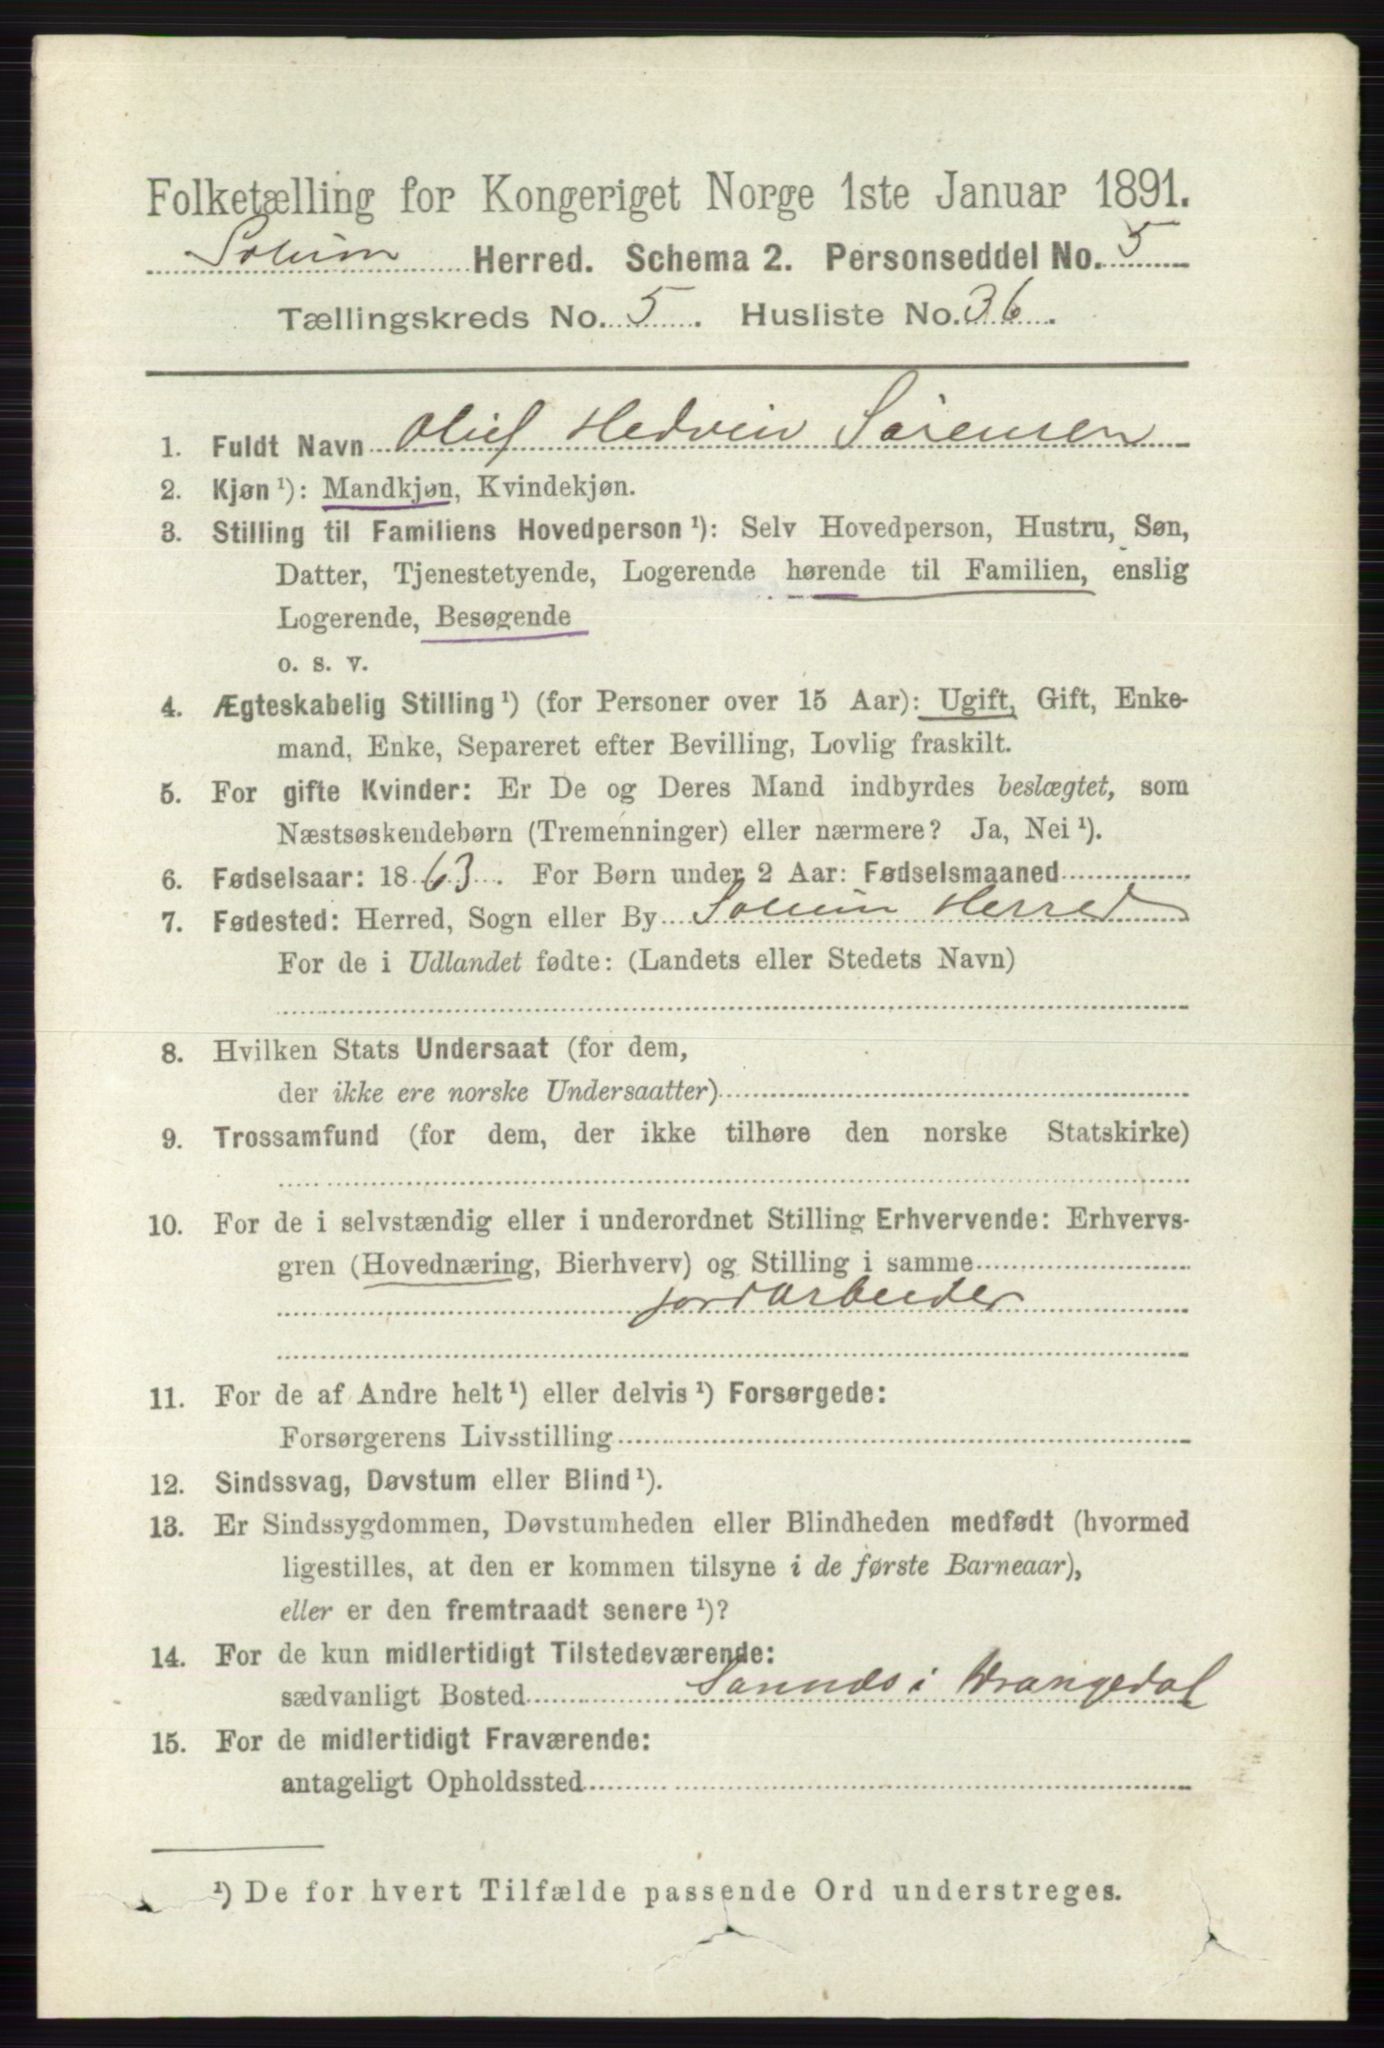 Folketælling for Kongeriget Norge 1ste Januar 1891.
Solum Herred. Schema 2. Personseddel No. 5
Tællingskreds No. 5. Husliste No. 36.
1. Fuldt Navn Oluf Hedvin Sørensen
2. Kjøn ¹): Mandkjøn, Kvindekjøn.
3. Stilling til Familiens Hovedperson ¹): Selv Hovedperson, Hustru, Søn,
Datter, Tjenestetyende, Logerende hørende til Familien, enslig
Logerende, Besøgende
o. s. v.
4. Ægteskabelig Stilling ¹) (for Personer over 15 Aar): Ugift, Gift, Enke-
mand, Enke, Separeret efter Bevilling, Lovlig fraskilt.
5. For gifte Kvinder: Er De og Deres Mand indbyrdes beslægtet, som
Næstsøskendebørn (Tremenninger) eller nærmere? Ja, Nei ¹).
6. Fødselsaar: 1863. For Børn under 2 Aar: Fødselsmaaned
7. Fødested: Herred, Sogn eller By Solum Herred
For de i Udlandet fødte: (Landets eller Stedets Navn)
8. Hvilken Stats Undersaat (for dem,
der ikke ere norske Undersaatter)
9. Trossamfund (for dem, der ikke tilhøre den norske Statskirke)
10. For de i selvstændig eller i underordnet Stilling Erhvervende: Erhvervs-
gren (Hovednæring, Bierhverv) og Stilling i samme
jordarbeider
11. For de af Andre helt ¹) eller delvis ¹) Forsørgede:
Forsørgerens Livsstilling
12. Sindssvag, Døvstum eller Blind ¹).
13. Er Sindssygdommen, Døvstumheden eller Blindheden medfødt (hvormed
ligestilles, at den er kommen tilsyne i de første Barneaar),
eller er den fremtraadt senere ¹)?
14. For de kun midlertidigt Tilstedeværende:
sædvanligt Bosted Sannæs i Drangedal
15. For de midlertidigt Fraværende:
antageligt Opholdssted
¹) De for hvert Tilfælde passende Ord understreges.